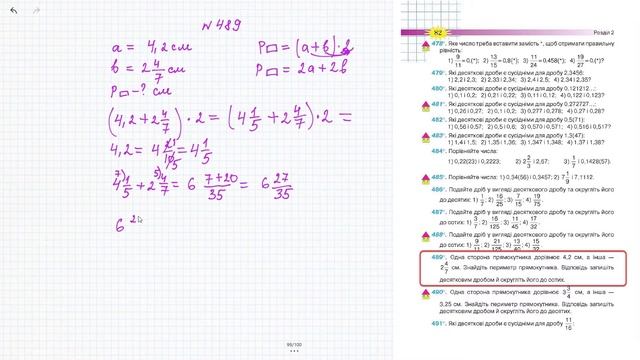 № 489
a = 4,2 см
P▭ = (a + b) · 2
b = 2 4/7 см
P▭ = 2a + 2b
P▭ - ? см
(4,2 + 2 4/7) · 2 = (4 1/5 + 2 4/7) · 2 =
4,2 = 4 2/10 = 4 1/5
4 1/5 + 2 4/7 = 6 (7+20)/35 = 6 27/35
6 2
99/100
82
Розділ 2
478°. Яке число треба вставити замість *, щоб отримати правильну
рівність:
1) 9/11 = 0,(*); 2) 13/15 = 0,8(*); 3) 11/24 = 0,458(*); 4) 19/27 = 0,(*)?
479°. Які десяткові дроби є сусідніми для дробу 2,3456:
1) 2,2 і 2,3; 2) 2,33 і 2,34; 3) 2,4 і 2,5; 4) 2,34 і 2,35?
480°. Які десяткові дроби є сусідніми для дробу 0,121212...:
1) 0,1 і 0,2; 2) 0,21 і 0,22; 3) 0,11 і 0,12; 4) 0,122 і 0,123?
481°. Які десяткові дроби є сусідніми для дробу 0,272727...:
1) 0,26 і 0,27; 2) 0,1 і 0,2; 3) 0,277 і 0,278; 4) 0,27 і 0,28?
482°. Які десяткові дроби є сусідніми для дробу 0,5(71):
1) 0,56 і 0,57; 2) 0,5 і 0,6; 3) 0,570 і 0,571; 4) 0,516 і 0,517?
483°. Які десяткові дроби є сусідніми для дробу 1,3(47):
1) 1,4 і 1,5; 2) 1,35 і 1,36; 3) 1,347 і 1,348; 4) 1,3 і 1,4?
484°. Які десяткові дроби є сусідніми для дробів:
1) 0,22(23) і 0,2223;
485°. Порівняйте дроби: 1) 0,34(56) і 0,3457;
486°. Подайте дріб у вигляді десяткового дробу та округліть його
до десятих:
487°. Подайте дріб у вигляді десяткового дробу та округліть його
до сотих:
488°. Подайте дріб у вигляді десяткового дробу та округліть його
до сотих:
489°. Одна сторона прямокутника дорівнює 4,2 см, а інша —
2 4/7 см. Знайдіть периметр прямокутника. Відповідь запишіть
десятковим дробом й округліть його до сотих.
490°. Одна сторона прямокутника дорівнює 3 3/4 см, а інша —
3,25 см. Знайдіть периметр прямокутника. Відповідь запишіть
десятковим дробом й округліть його до десятих.
491°. Які десяткові дроби є сусідніми для дробу 11/16: